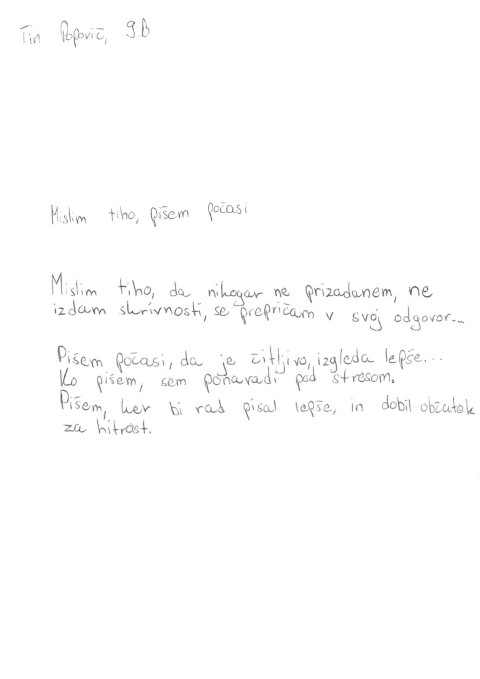 Tin Popovič, 9.B
Mislim tiho, pišem počasi
Mislim tiho, da nikogar ne prizadanem, ne
izdam skrivnosti, se prepričam v svoj odgovor...
Pišem počasi, da je čitljivo, izgleda lepše...
Ko pišem, sem ponavadi pod stresom.
Pišem, ker bi rad pisal lepše, in dobil občutek
za hitrost.